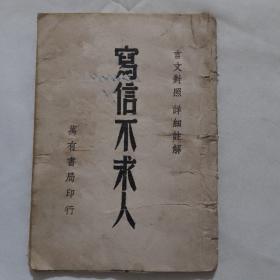 言文對照 詳細註解
寫信不求人
萬有書局印行